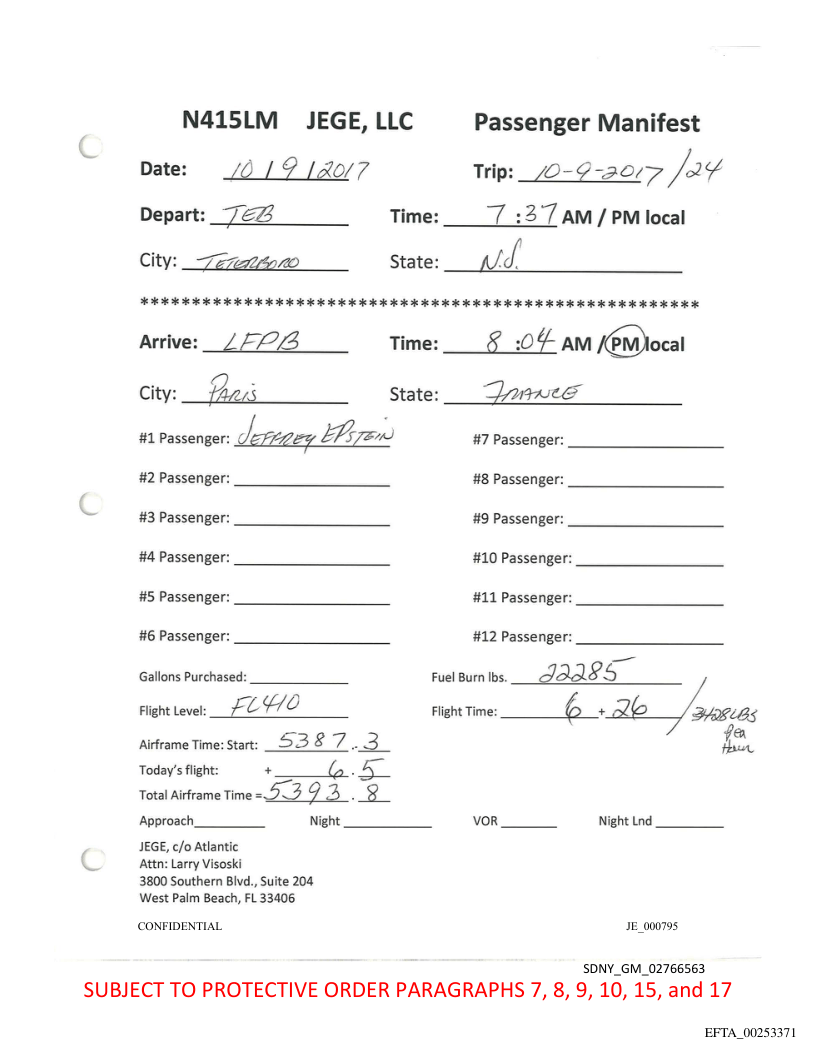 N415LM JEGE, LLC Passenger Manifest
Date: 10 / 9 / 2017 Trip: 10-9-2017 / 24
Depart: TEB Time: 7 : 37 AM / PM local
City: TETERBORO State: N.J.
******************************************************
Arrive: LFPB Time: 8 : 04 AM / PM local
City: PARIS State: FRANCE
#1 Passenger: JEFFREY EPSTEIN #7 Passenger:
#2 Passenger: #8 Passenger:
#3 Passenger: #9 Passenger:
#4 Passenger: #10 Passenger:
#5 Passenger: #11 Passenger:
#6 Passenger: #12 Passenger:
Gallons Purchased: Fuel Burn lbs. 22285
Flight Level: FL410 Flight Time: 6 + 26 / 3428 LBS
per
Hour
Airframe Time: Start: 5387 . 3
Today's flight: + 6 . 5
Total Airframe Time = 5393 . 8
Approach Night VOR Night Lnd
JEGE, c/o Atlantic
Attn: Larry Visoski
3800 Southern Blvd., Suite 204
West Palm Beach, FL 33406
CONFIDENTIAL JE_000795
SDNY_GM_02766563
SUBJECT TO PROTECTIVE ORDER PARAGRAPHS 7, 8, 9, 10, 15, and 17
EFTA_00253371